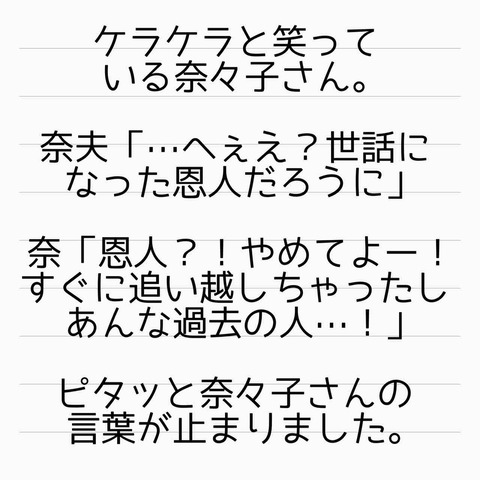 ケラケラと笑って
いる奈々子さん。
奈夫「…へぇえ？世話に
なった恩人だろうに」
奈「恩人？！やめてよー！
すぐに追い越しちゃったし
あんな過去の人…！」
ピタッと奈々子さんの
言葉が止まりました。